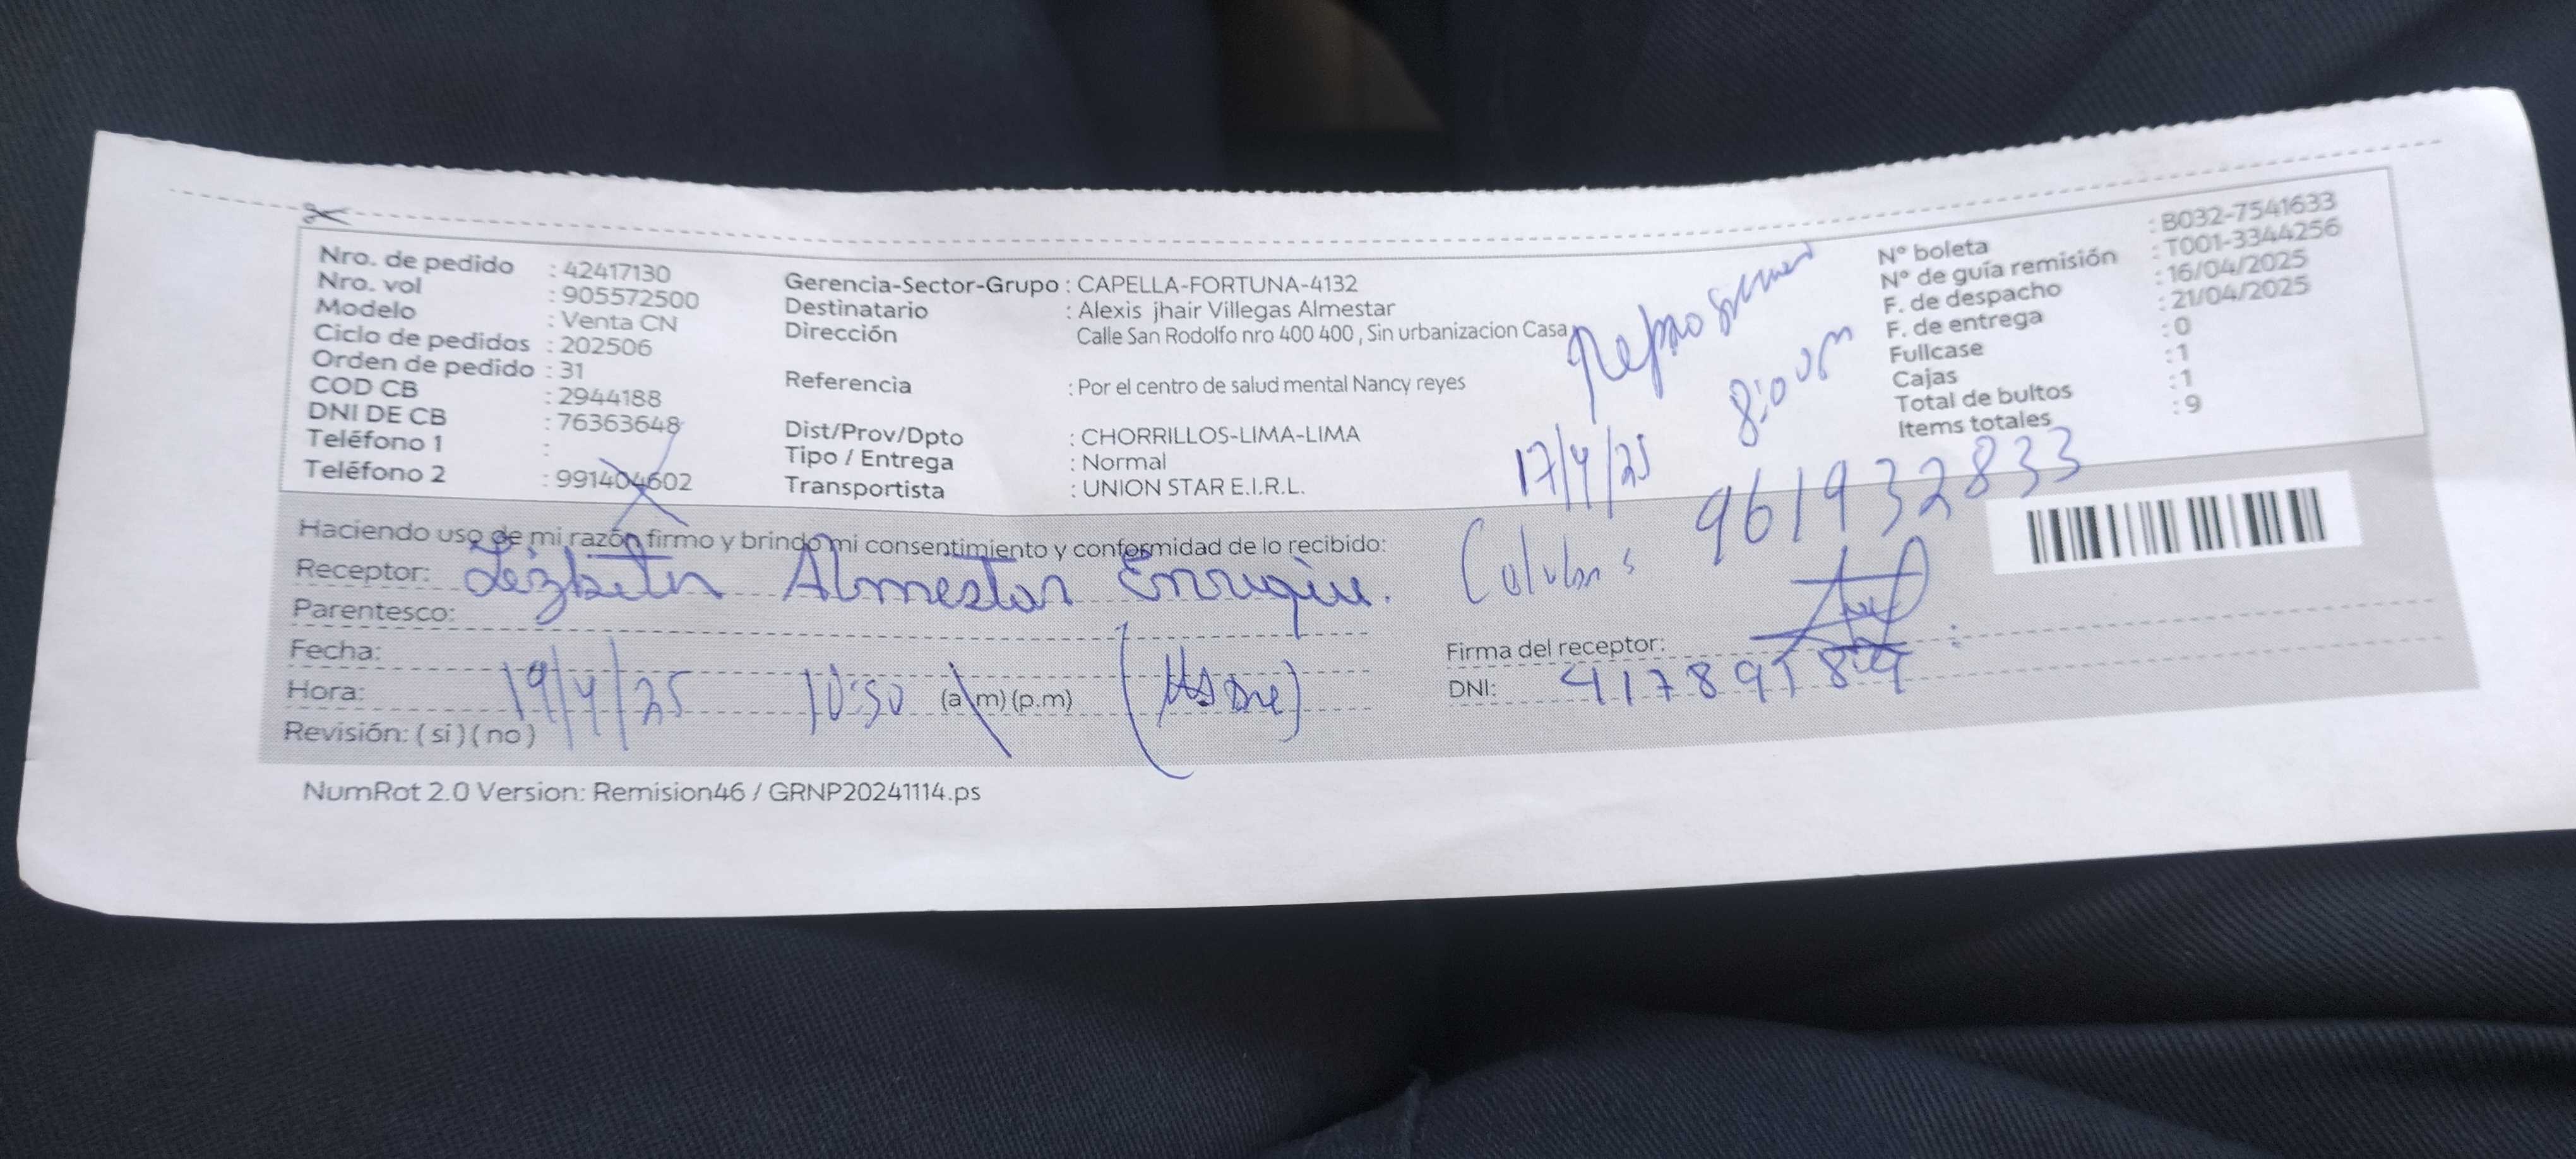 Nro. de pedido : 42417130
Nro. vol : 905572500
Modelo : Venta CN
Ciclo de pedidos : 202506
Orden de pedido : 31
COD CB : 2944188
DNI DE CB : 76363648
Teléfono 1 :
Teléfono 2 : 991404602
Gerencia-Sector-Grupo : CAPELLA-FORTUNA-4132
Destinatario : Alexis jhair Villegas Almestar
Dirección Calle San Rodolfo nro 400 400 , Sin urbanizacion Casa
Referencia : Por el centro de salud mental Nancy reyes
Dist/Prov/Dpto : CHORRILLOS-LIMA-LIMA
Tipo / Entrega : Normal
Transportista : UNION STAR E.I.R.L.
N° boleta : B032-7541633
N° de guía remisión : T001-3344256
F. de despacho : 16/04/2025
F. de entrega : 21/04/2025
Fullcase : 0
Cajas : 1
Total de bultos : 1
Items totales : 9
17/4/25
961932833
Haciendo uso de mi razón firmo y brindo mi consentimiento y conformidad de lo recibido:
Receptor: Lizbeth Almestar Enrique.
Parentesco:
Fecha: 19/4/25
Hora: 10:30 (a.m) (p.m)
Revisión: ( si ) ( no )
Firma del receptor:
DNI:
NumRot 2.0 Version: Remision46 / GRNP20241114.ps